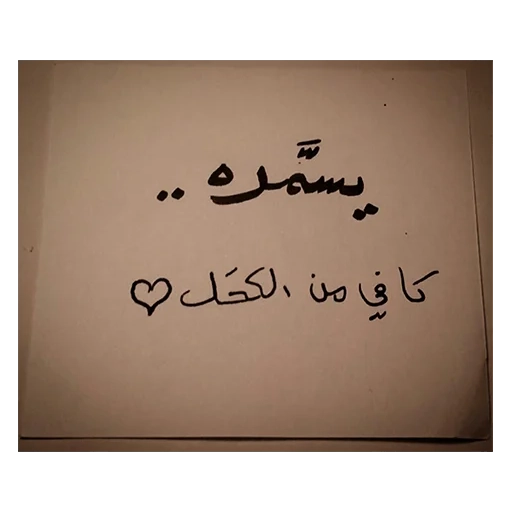 يسمَّره ..
كافي من الكحَل ♡